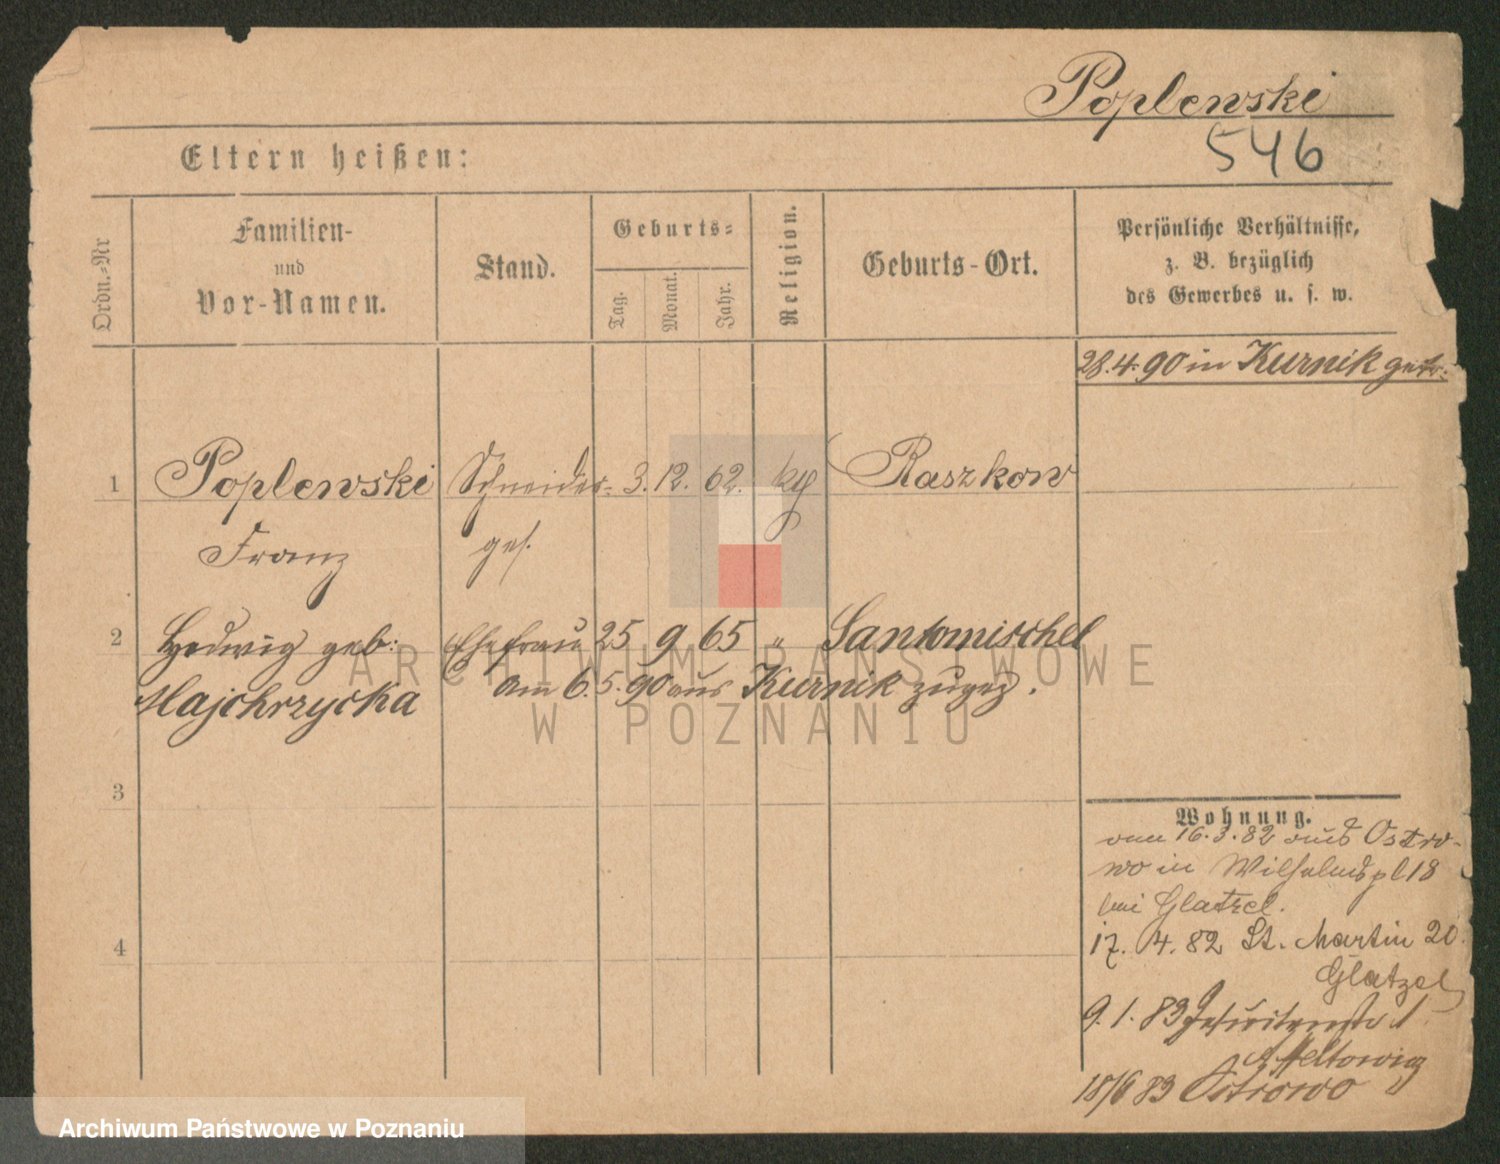 Poplewski
546
Eltern heißen:
Ordn.-Nr
Familien-
und
Vor-Namen.
Stand.
Geburts-
Tag.
Monat.
Jahr.
Religion.
Geburts-Ort.
Persönliche Verhältnisse,
z. B. bezüglich
des Gewerbes u. s. w.
28.4.90 in Kurnik getr.
1 Poplewski Schneider- 3. 12. 62. kth Raszkow
Franz ges.
2 Hedwig geb: Ehefrau 25 9 65 " Santomischel
Majchrzycka am 6.5.90 aus Kurnik zugez.
3
4
Wohnung.
vom 16.3.82 aus Ostro-
wo in Wilhelmspl 18
bei Glatzel.
17. 4. 82 St. Martin 20.
Glatzel
9.1.83 Jesuitenstr 1
18/6 83 Ostrowo
ARCHIWUM PAŃSTWOWE
W POZNANIU
Archiwum Państwowe w Poznaniu